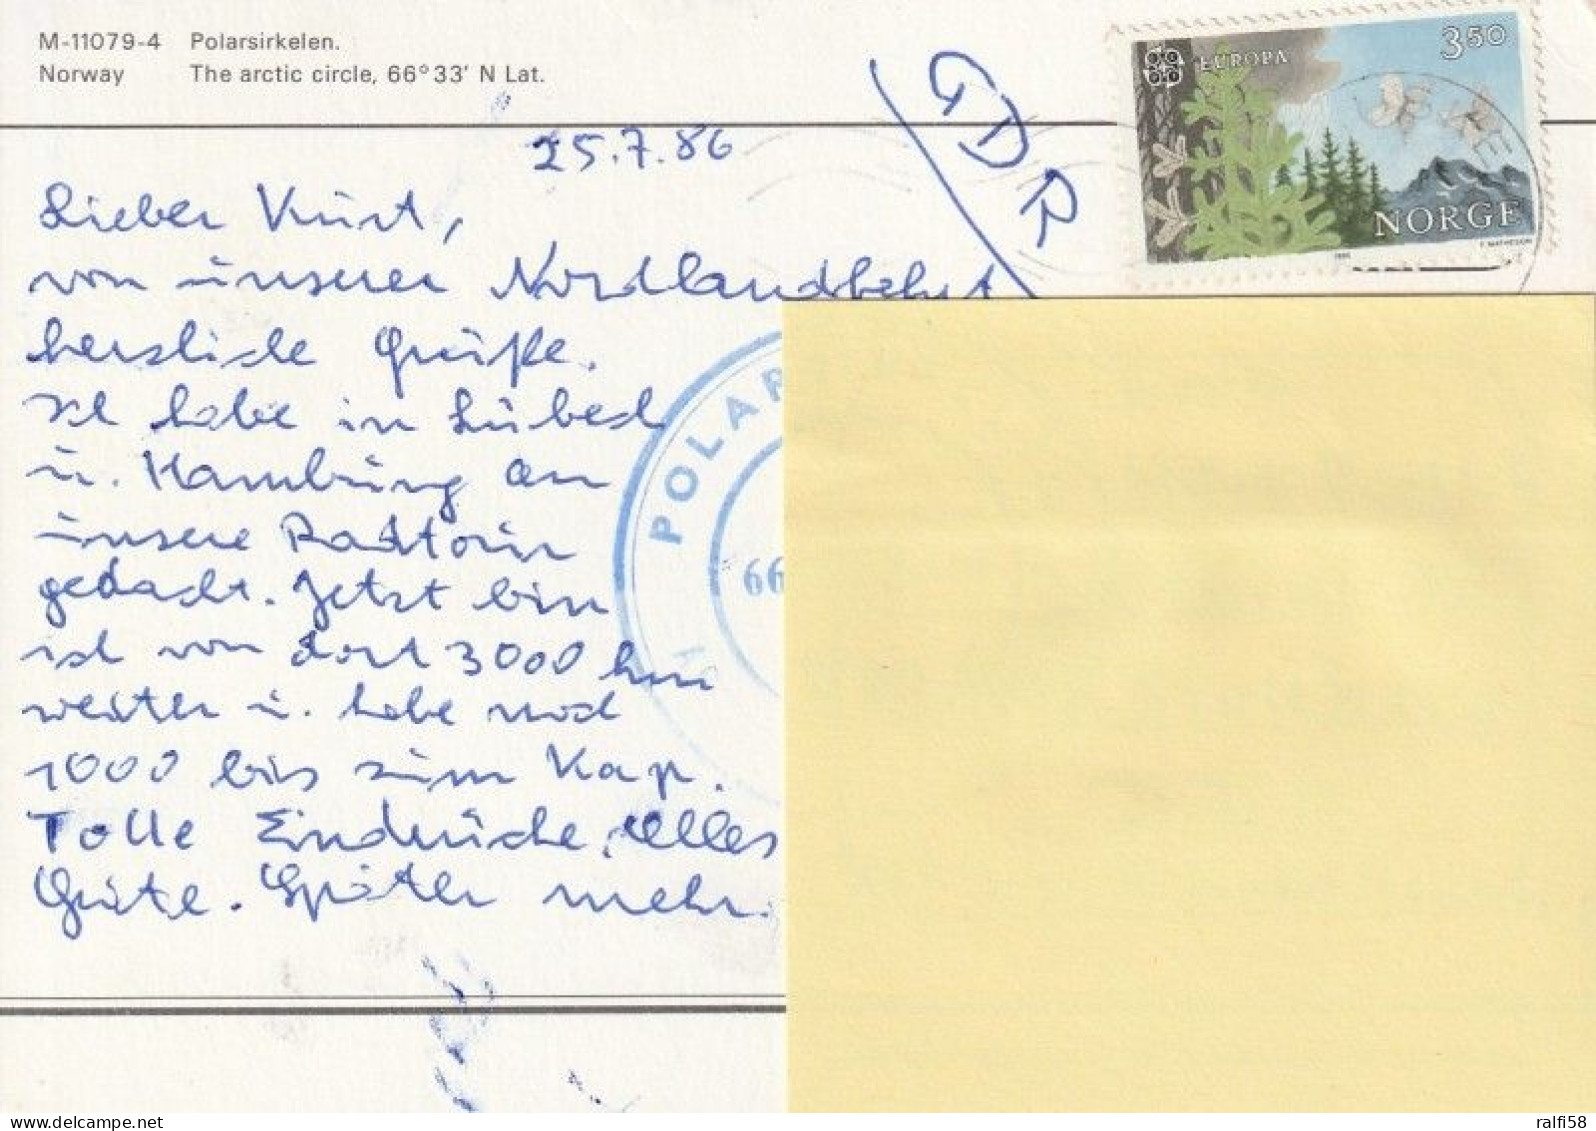 M-11079-4 Polarsirkelen.
Norway The arctic circle, 66° 33' N Lat.
EUROPA
3 50
NORGE
GDR
25.7.86
Lieber Kurt,
von unserer Nordlandfahrt
herzliche Grüße.
Ich habe in Lübeck
u. Hamburg an
unsere Radtour
gedacht. Jetzt bin
ich von dort 3000 km
weiter u. habe noch
1000 bis zum Kap.
Tolle Eindrücke. Alles
Gute. Später mehr.
POLAR
66
delcampe.net
ralfi58